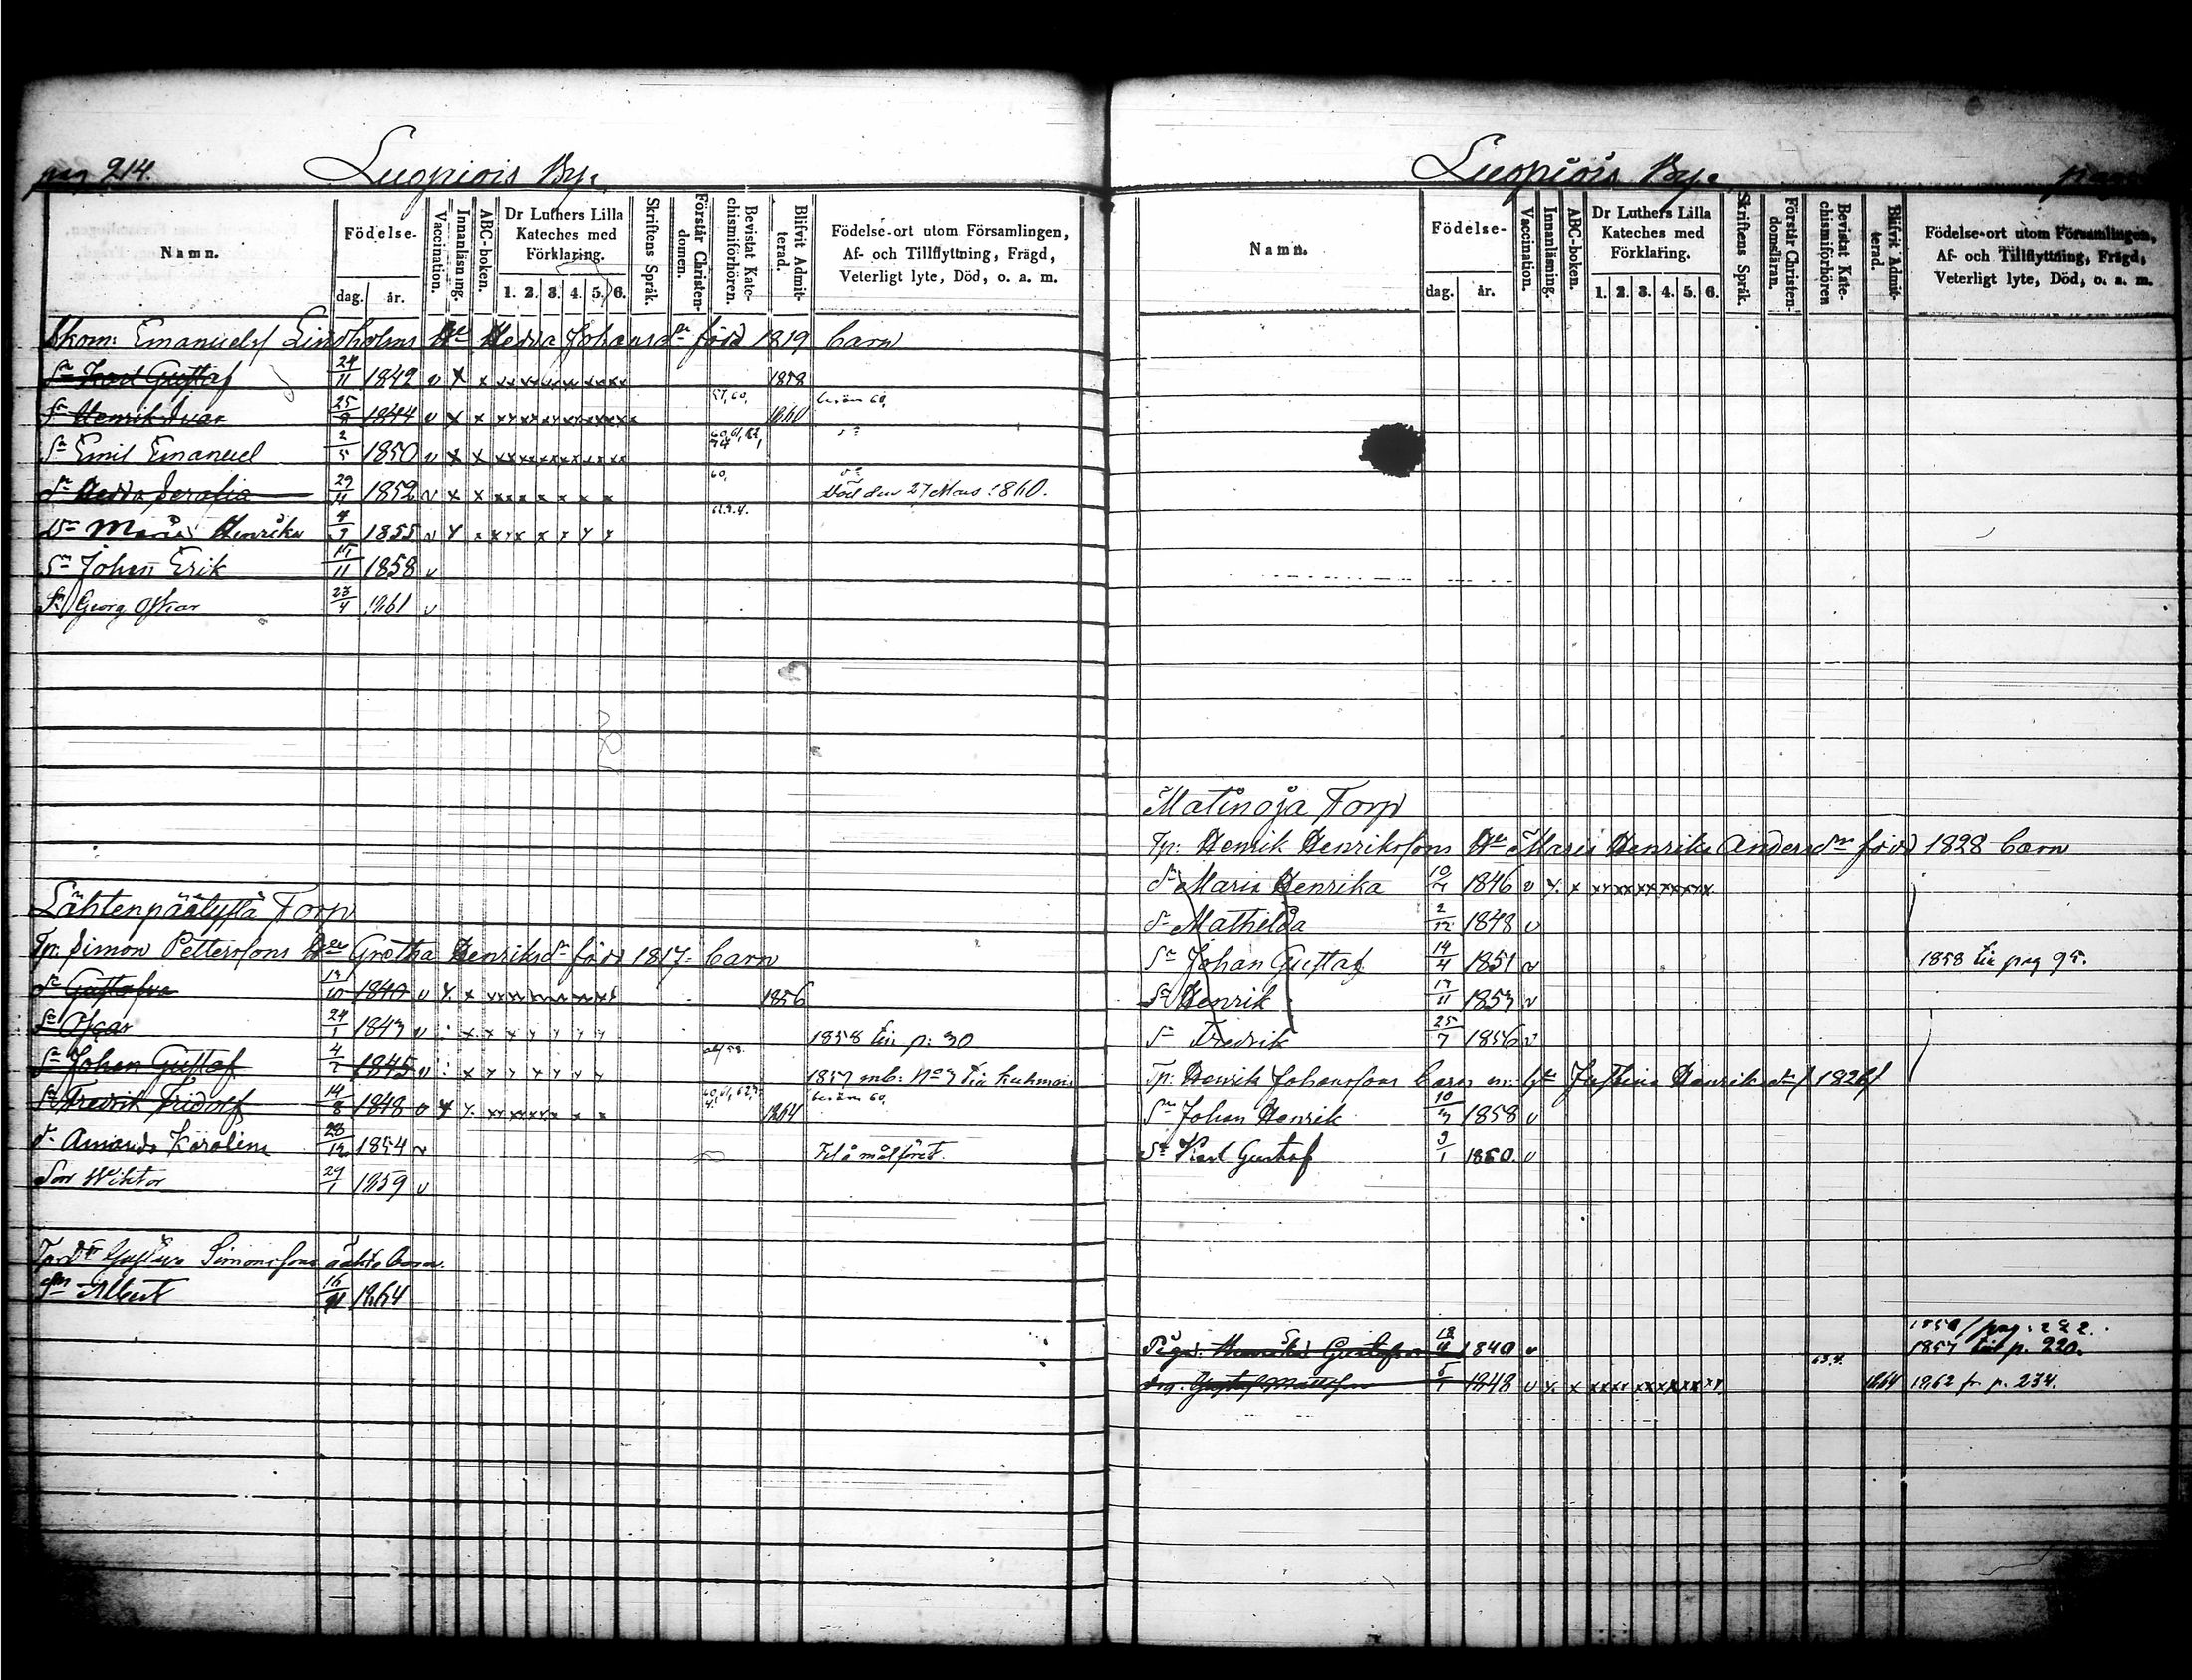 pag 214.
Luopiois By.
Namn.
Födelse-
dag. år.
Vaccination.
Innanläsning.
ABC-boken.
Dr Luthers Lilla Kateches med Förklaring.
1. 2. 3. 4. 5. 6.
Skriftens Språk.
Förstår Christen-domen.
Bevistat Kate-chismiförhören.
Blifvit Admit-terad.
Födelse-ort utom Församlingen,
Af- och Tillflyttning, Frägd,
Veterligt lyte, Död, o. a. m.
Skom: Emanuel Lindholms Hu Hedda Johansdr född 1819 barn
Sn Karl Gustaf 24/11 1842 v x x 1858
Sn Henrik Ivar 25/8 1844 v x x 57,60, 1860
Sn Emil Emanuel 2/5 1850 v x x
Dr Hedda Seralia 29/4 1852 v x x 60, död den 27 Mars 1860.
Dr Maria Henrika 4/9 1855 v x
Sn Johan Erik 15/11 1858 v
Sn Georg Oskar 23/4 1861 v
Lähtenpäälystä Torp
Tp. Simon Petterssons Hu Gretha Henriksdr född 1817. barn
Dr Gustafva 1840 v x x 1856
Sn Oscar 24/1 1843 v 1858 till p: 30
Sn Johan Gustaf 4/7 1845 v
Sn Fredrik Fridolf 14/8 1848 v x x 1864
Dr Amanda Karolina 28/12 1854 v
Son Wiktor 29/1 1859 v
Simonssons
Sn Albert 16/ 1864
Luopiois By.
Namn.
Födelse-
dag. år.
Vaccination.
Innanläsning.
ABC-boken.
Dr Luthers Lilla Kateches med Förklaring.
1. 2. 3. 4. 5. 6.
Skriftens Språk.
Förstår Christen-domsläran.
Bevistat Kate-chismiförhören
Blifvit Admit-terad.
Födelse-ort utom Församlingen,
Af- och Tillflyttning, Frägd,
Veterligt lyte, Död, o. a. m.
Matinoja Torp
Tp: Henrik Henrikssons Hu Maria Henrika Andersdr född 1828 barn
Dr Maria Henrika 10/7 1846 v x x
Dr Mathilda 2/12 1848 v
Sn Johan Gustaf 14/4 1851 v 1858 till pag 95.
Sn Henrik 1853 v
Sn Fredrik 25/7 1856 v
Tp: Henrik Johanssons barn m: Hu Justina Henriksdr f 1826
Sn Johan Henrik 10/3 1858 v
Sn Karl Gustaf 9/1 1860. v
Pigan: Gustafsdr 1840 v 1857 till p. 220.
drg. Gustaf Mattsson 5/1 1848 v x x 63.4. 1864 1862 fr p. 234.